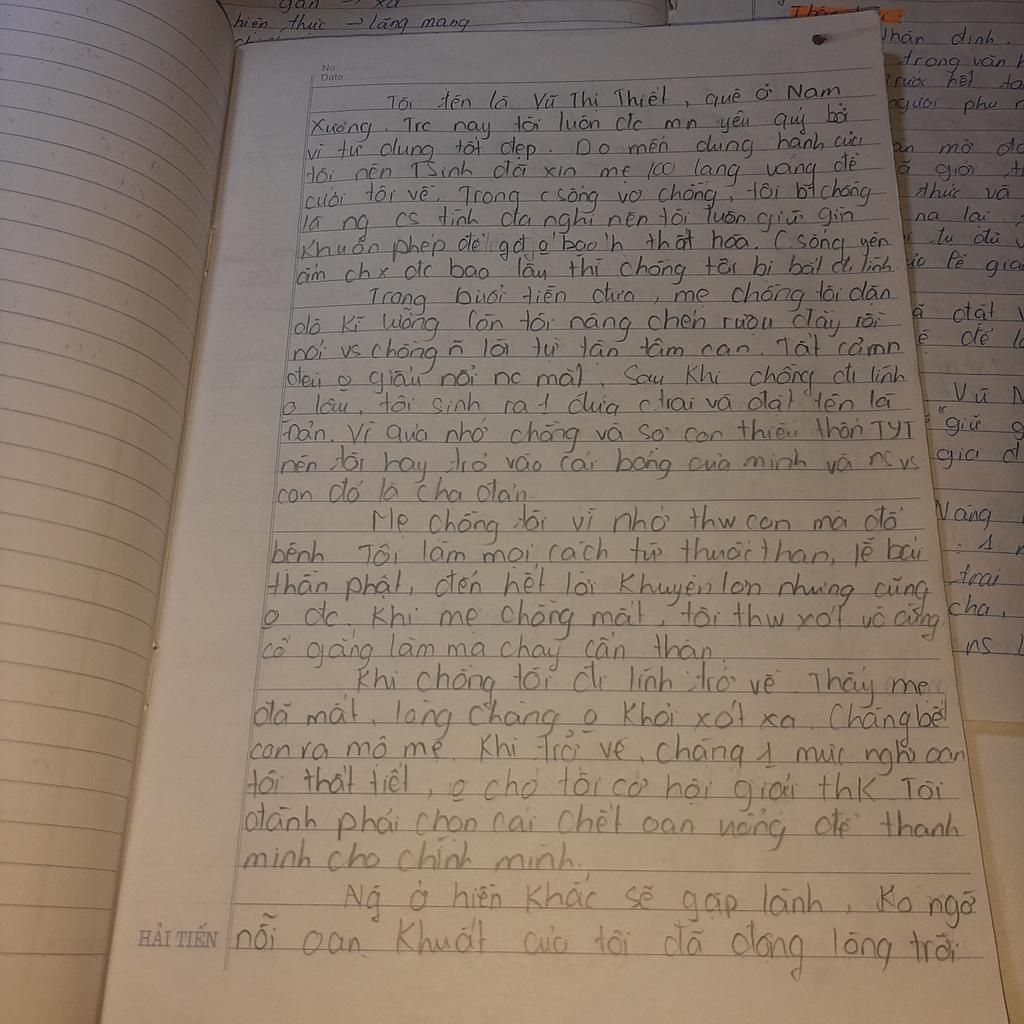 gần → xa
hiện thực → lãng mạng
No.
Date
Tôi tên là Vũ Thị Thiết, quê ở Nam
Xương. Trc nay tôi luôn đc mn yêu quý bởi
vì tư dung tốt đẹp. Do mến dung hạnh của
tôi nên TSinh đã xin mẹ 100 lạng vàng để
cưới tôi về. Trong csống vợ chồng, tôi bt chồng
là ng cs tính đa nghi nên tôi luôn giữ gìn
khuôn phép để gđ o bao h thất hòa. Csống yên
ấm chx đc bao lâu thì chồng tôi bị bắt đi lính.
Trong buổi tiễn đưa, mẹ chồng tôi dặn
dò kĩ lưỡng còn tôi nâng chén rượu đầy rồi
nói vs chồng n lời từ tận tâm can. Tất cả mn
đều o giấu nổi nc mắt. Sau khi chồng đi lính
o lâu, tôi sinh ra 1 đứa ctrai và đặt tên là
Đản. Vì quá nhớ chồng và sợ con thiếu thốn TYT
nên tôi hay trỏ vào cái bóng của mình và ns vs
con đó là cha đản.
Mẹ chồng tôi vì nhớ thw con mà đổ
bệnh Tôi làm mọi cách từ thuốc than, lễ bái
thần phật, đến hết lời khuyên lơn nhưng cũng
o đc. Khi mẹ chồng mất, tôi thw xót vô cùng,
cố gắng làm ma chay cẩn thận.
Khi chồng tôi đi lính trở về Thấy mẹ
đã mất, lòng chàng o khỏi xót xa. Chàng bế
con ra mộ mẹ. Khi trở về, chàng 1 mực nghi oan
tôi thất tiết, o cho tôi cơ hội giải thk Tôi
đành phải chọn cái chết oan uổng để thanh
minh cho chính mình.
Ng ở hiền khắc sẽ gặp lành, Ko ngờ
nỗi oan khuất của tôi đã động lòng trời
HẢI TIẾN
Nhận định.
trong văn h
Trước hết ta
người phụ n
giới
thức và
na lại
đã đặt v
Vũ N
"giữ g
gia đ
Nàng
: 1
trai
cha,
ns